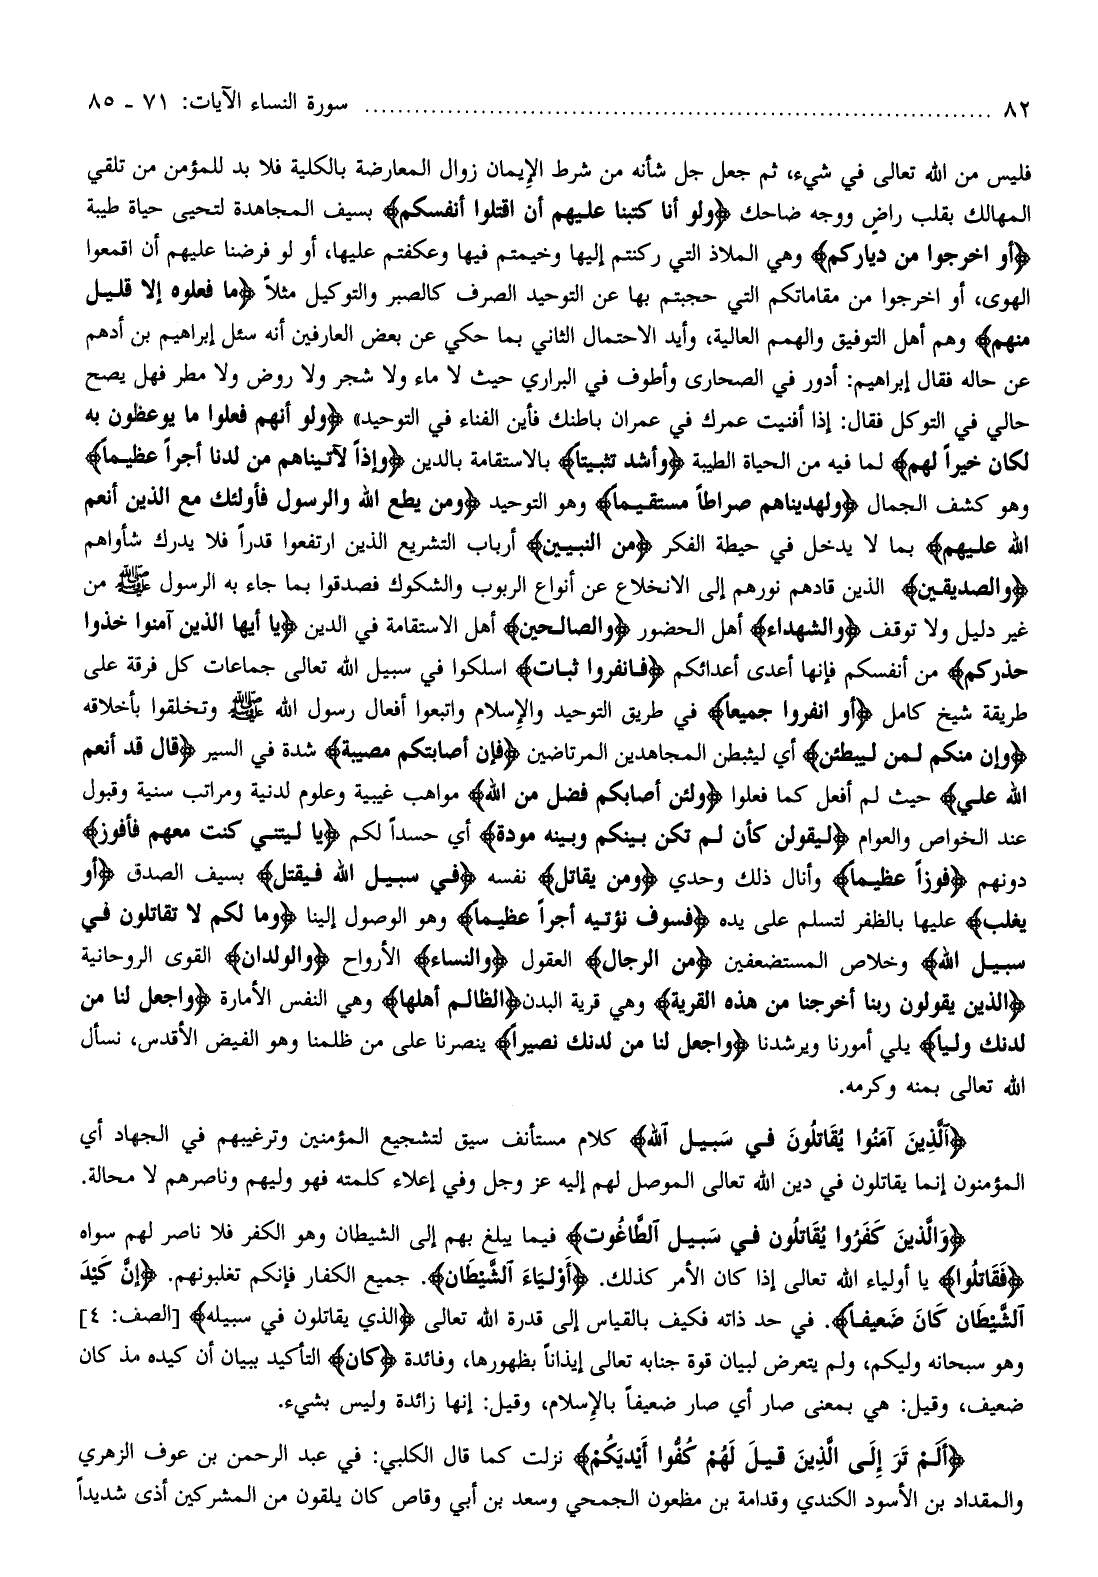 ٨٢ ........................................................................ سورة النساء الآيات: ٧١ - ٨٥
فليس من الله تعالى في شيء، ثم جعل جل شأنه من شرط الإيمان زوال المعارضة بالكلية فلا بد للمؤمن من تلقي
المهالك بقلب راضٍ ووجه ضاحك ﴿ولو أنا كتبنا عليهم أن اقتلوا أنفسكم﴾ بسيف المجاهدة لتحيى حياة طيبة
﴿أو اخرجوا من دياركم﴾ وهي الملاذ التي ركنتم إليها وخيمتم فيها وعكفتم عليها، أو لو فرضنا عليهم أن اقمعوا
الهوى، أو اخرجوا من مقاماتكم التي حجبتم بها عن التوحيد الصرف كالصبر والتوكيل مثلاً ﴿ما فعلوه إلا قليل
منهم﴾ وهم أهل التوفيق والهمم العالية، وأيد الاحتمال الثاني بما حكي عن بعض العارفين أنه سئل إبراهيم بن أدهم
عن حاله فقال إبراهيم: أدور في الصحارى وأطوف في البراري حيث لا ماء ولا شجر ولا روض ولا مطر فهل يصح
حالي في التوكل فقال: إذا أفنيت عمرك في عمران باطنك فأين الفناء في التوحيد» ﴿ولو أنهم فعلوا ما يوعظون به
لكان خيراً لهم﴾ لما فيه من الحياة الطيبة ﴿وأشد تثبيتاً﴾ بالاستقامة بالدين ﴿وإذاً لآتيناهم من لدنا أجراً عظيماً﴾
وهو كشف الجمال ﴿ولهديناهم صراطاً مستقيماً﴾ وهو التوحيد ﴿ومن يطع الله والرسول فأولئك مع الذين أنعم
الله عليهم﴾ بما لا يدخل في حيطة الفكر ﴿من النبيين﴾ أرباب التشريع الذين ارتفعوا قدراً فلا يدرك شأواهم
﴿والصديقين﴾ الذين قادهم نورهم إلى الانخلاع عن أنواع الربوب والشكوك فصدقوا بما جاء به الرسول ﷺ من
غير دليل ولا توقف ﴿والشهداء﴾ أهل الحضور ﴿والصالحين﴾ أهل الاستقامة في الدين ﴿يا أيها الذين آمنوا خذوا
حذركم﴾ من أنفسكم فإنها أعدى أعدائكم ﴿فانفروا ثبات﴾ اسلكوا في سبيل الله تعالى جماعات كل فرقة على
طريقة شيخ كامل ﴿أو انفروا جميعاً﴾ في طريق التوحيد والإسلام واتبعوا أفعال رسول الله ﷺ وتخلقوا بأخلاقه
﴿وإن منكم لمن ليبطئن﴾ أي ليثبطن المجاهدين المرتاضين ﴿فإن أصابتكم مصيبة﴾ شدة في السير ﴿قال قد أنعم
الله علي﴾ حيث لم أفعل كما فعلوا ﴿ولئن أصابكم فضل من الله﴾ مواهب غيبية وعلوم لدنية ومراتب سنية وقبول
عند الخواص والعوام ﴿ليقولن كأن لم تكن بينكم وبينه مودة﴾ أي حسداً لكم ﴿يا ليتني كنت معهم فأفوز﴾
دونهم ﴿فوزاً عظيماً﴾ وأنال ذلك وحدي ﴿ومن يقاتل﴾ نفسه ﴿في سبيل الله فيقتل﴾ بسيف الصدق ﴿أو
يغلب﴾ عليها بالظفر لتسلم على يده ﴿فسوف نؤتيه أجراً عظيماً﴾ وهو الوصول إلينا ﴿وما لكم لا تقاتلون في
سبيل الله﴾ وخلاص المستضعفين ﴿من الرجال﴾ العقول ﴿والنساء﴾ الأرواح ﴿والولدان﴾ القوى الروحانية
﴿الذين يقولون ربنا أخرجنا من هذه القرية﴾ وهي قرية البدن﴿الظالم أهلها﴾ وهي النفس الأمارة ﴿واجعل لنا من
لدنك ولياً﴾ يلي أمورنا ويرشدنا ﴿واجعل لنا من لدنك نصيراً﴾ ينصرنا على من ظلمنا وهو الفيض الأقدس، نسأل
الله تعالى بمنه وكرمه.
﴿ٱلَّذِينَ آمَنُوا يُقَاتلُونَ في سَبيل ٱلله﴾ كلام مستأنف سيق لتشجيع المؤمنين وترغيبهم في الجهاد أي
المؤمنون إنما يقاتلون في دين الله تعالى الموصل لهم إليه عز وجل وفي إعلاء كلمته فهو وليهم وناصرهم لا محالة.
﴿وَالَّذينَ كَفَرُوا يُقَاتلُون في سَبيل ٱلطَّاغُوت﴾ فيما يبلغ بهم إلى الشيطان وهو الكفر فلا ناصر لهم سواه
﴿فَقَاتلُوا﴾ يا أولياء الله تعالى إذا كان الأمر كذلك. ﴿أَوْليَاءَ ٱلشَّيْطَان﴾. جميع الكفار فإنكم تغلبونهم. ﴿إنَّ كَيْدَ
ٱلشَّيْطَان كَانَ ضَعيفاً﴾. في حد ذاته فكيف بالقياس إلى قدرة الله تعالى ﴿الذي يقاتلون في سبيله﴾ [الصف: ٤]
وهو سبحانه وليكم، ولم يتعرض لبيان قوة جنابه تعالى إيذاناً بظهورها، وفائدة ﴿كان﴾ التأكيد ببيان أن كيده مذ كان
ضعيف، وقيل: هي بمعنى صار أي صار ضعيفاً بالإسلام، وقيل: إنها زائدة وليس بشيء.
﴿أَلَمْ تَرَ إلَى الَّذينَ قيلَ لَهُمْ كُفُّوا أَيْديَكُمْ﴾ نزلت كما قال الكلبي: في عبد الرحمن بن عوف الزهري
والمقداد بن الأسود الكندي وقدامة بن مظعون الجمحي وسعد بن أبي وقاص كان يلقون من المشركين أذى شديداً